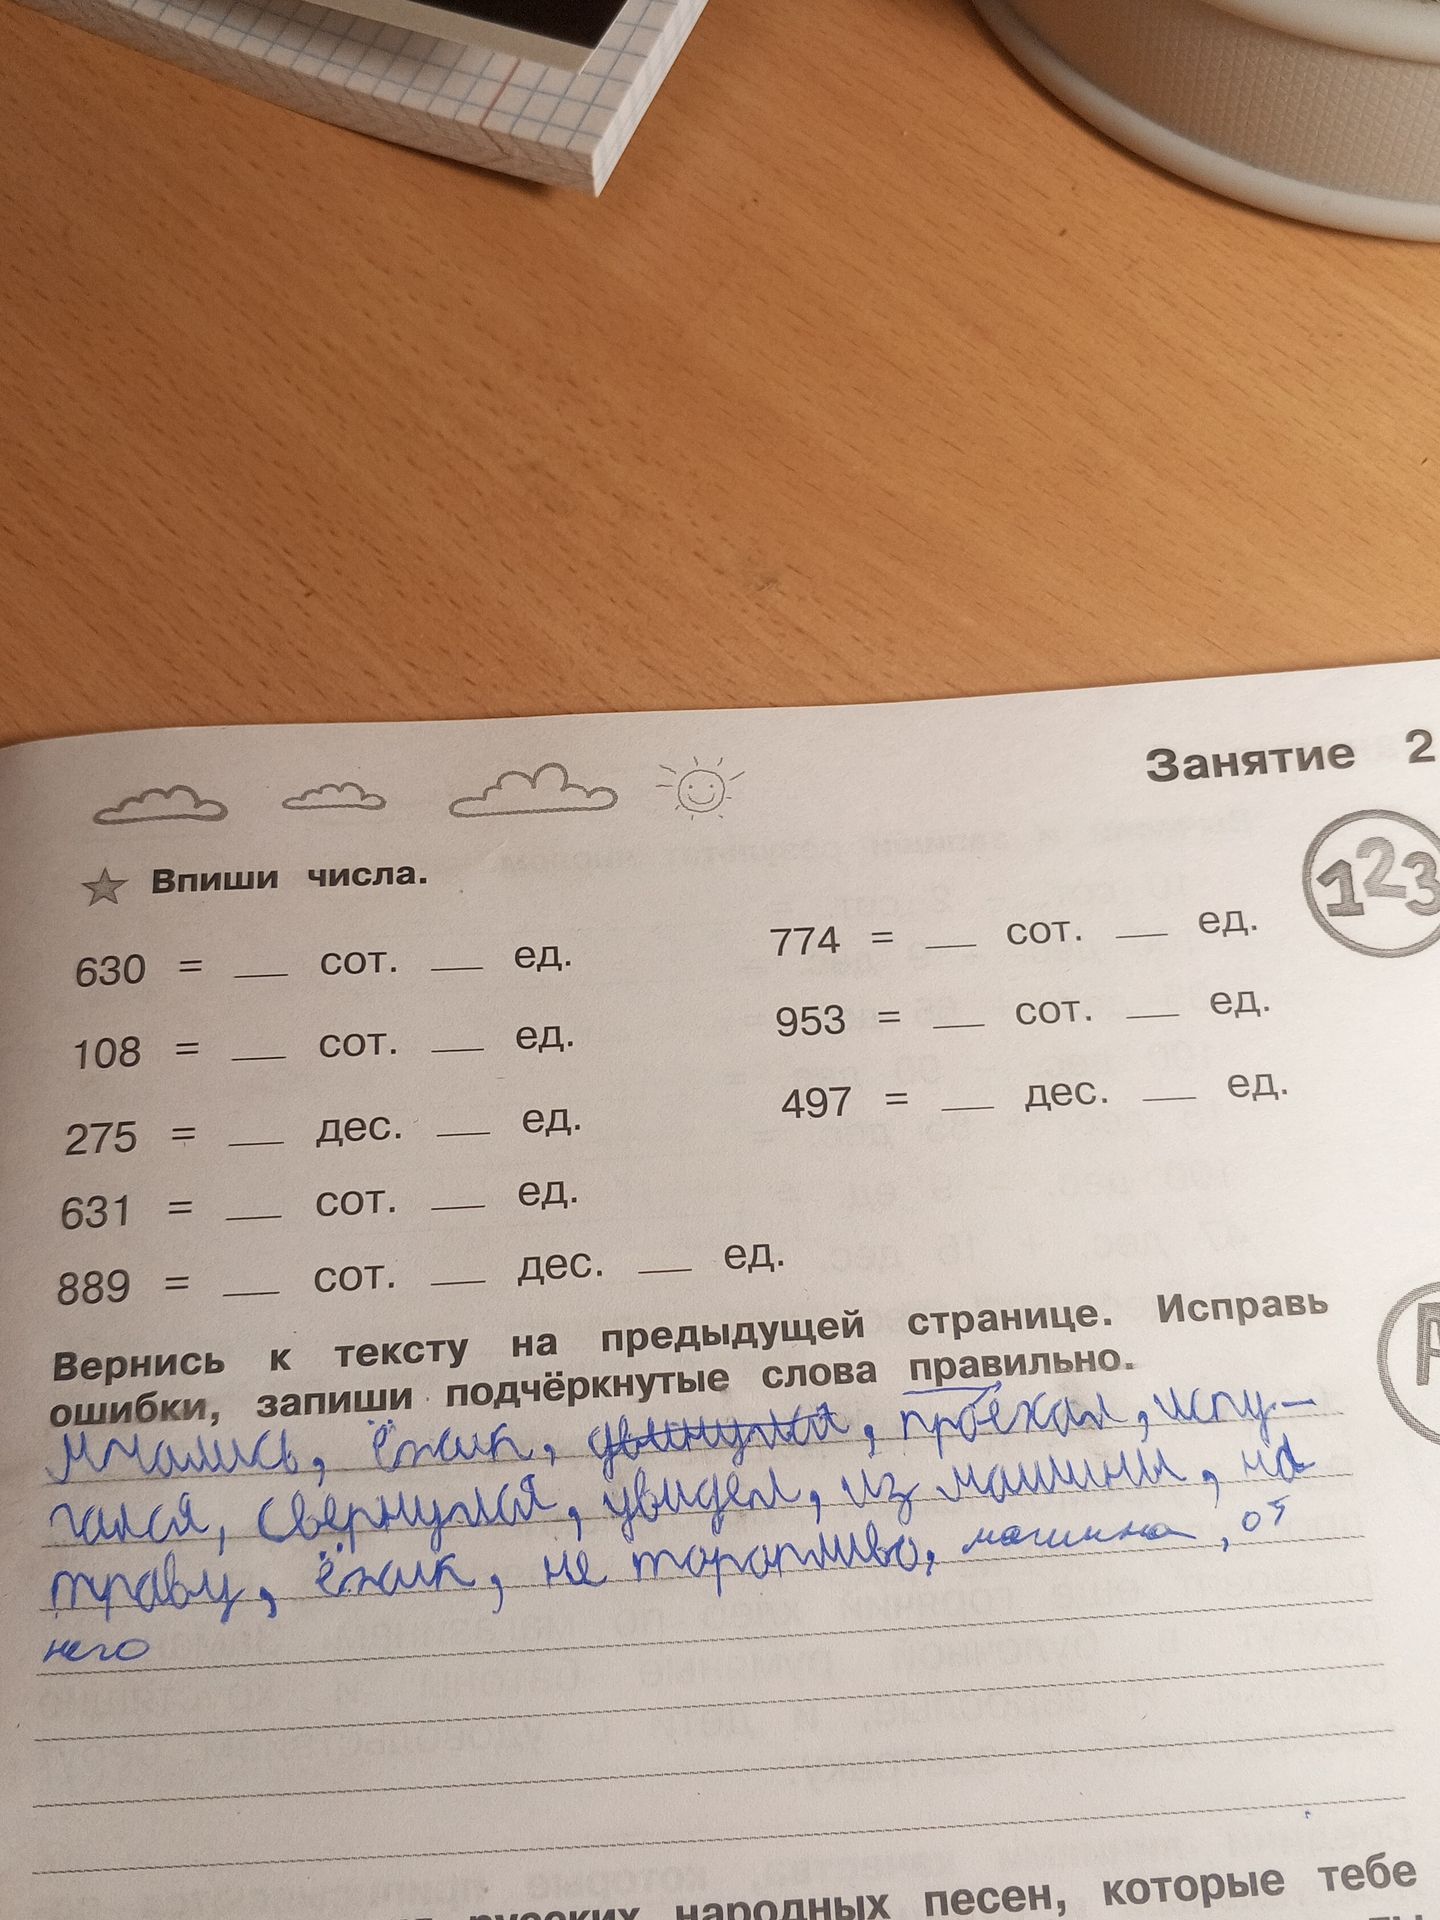 Занятие 2
123
Впиши числа.
630 = __ сот. __ ед.
108 = __ сот. __ ед.
275 = __ дес. __ ед.
631 = __ сот. __ ед.
889 = __ сот. __ дес. __ ед.
774 = __ сот. __ ед.
953 = __ сот. __ ед.
497 = __ дес. __ ед.
Вернись к тексту на предыдущей странице. Исправь
ошибки, запиши подчёркнутые слова правильно.
мчались, ёжик, , проехал, испу-
гался, свернулся, увидел, из машины, на
траву, ёжик, не торопливо, машина, от
него
русских народных песен, которые тебе